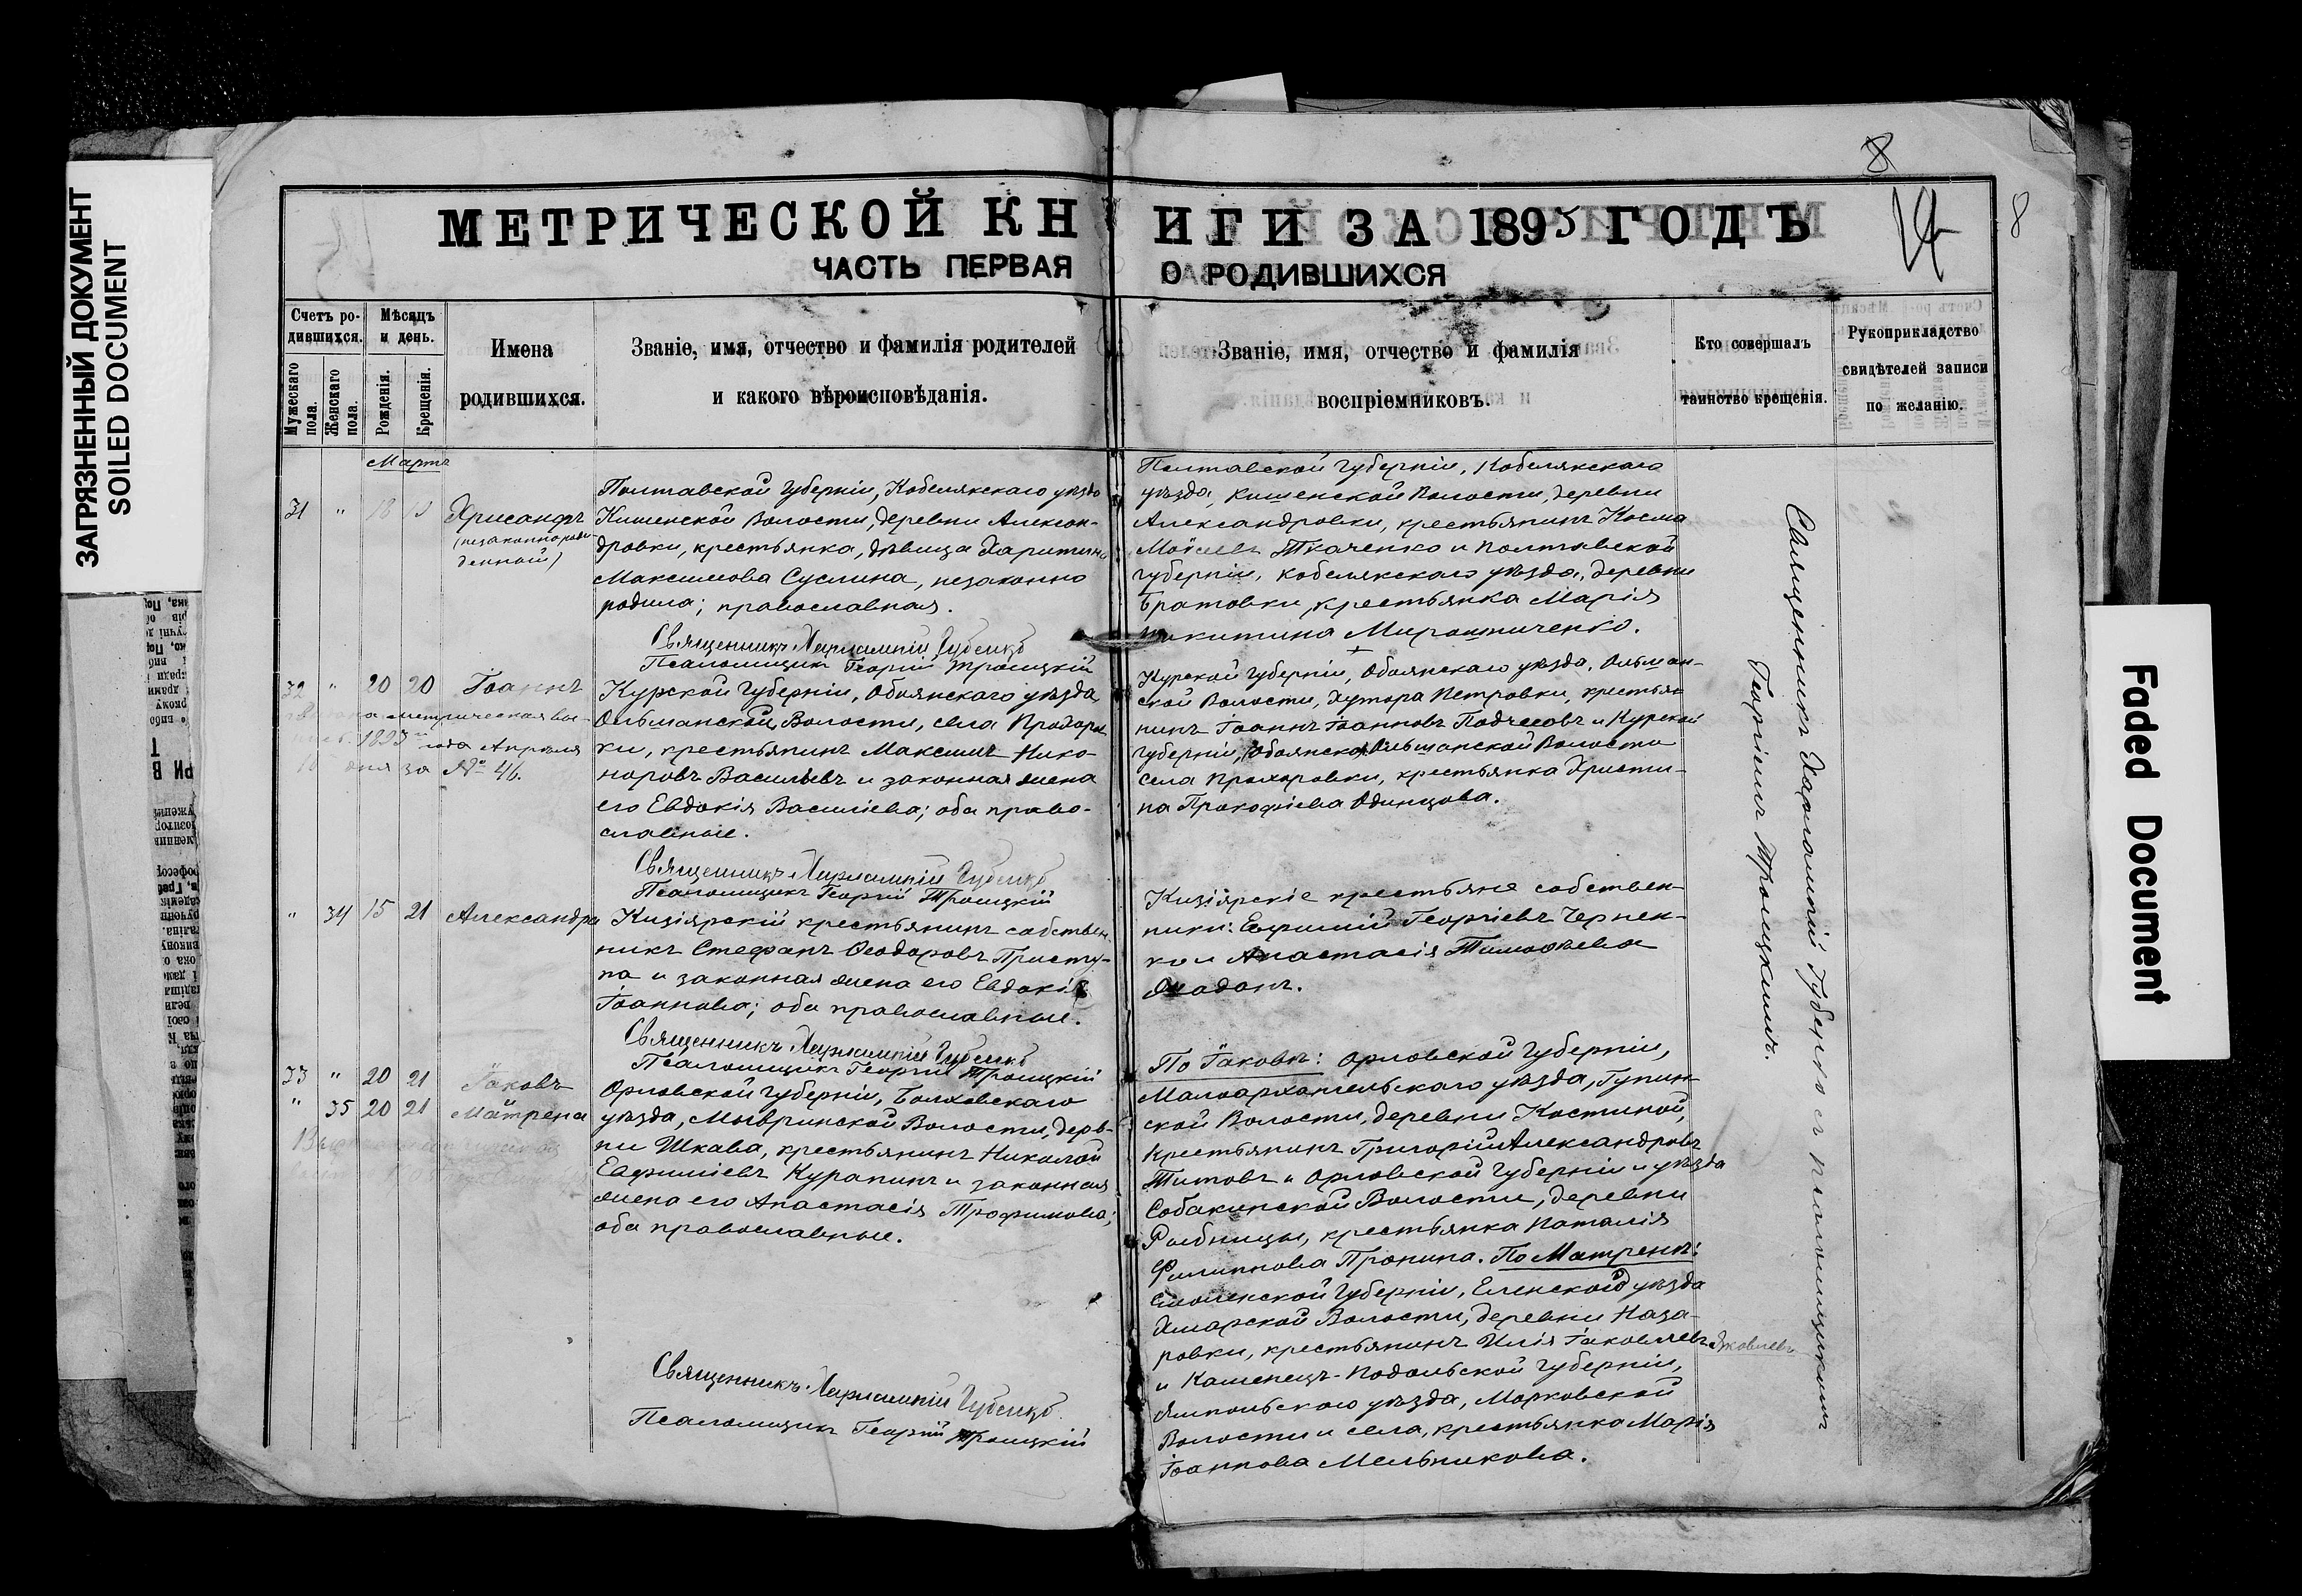 ЗАГРЯЗНЕННЫЙ ДОКУМЕНТ
SOILED DOCUMENT
8
8
МЕТРИЧЕСКОЙ КН
ИГИ ЗА 1895 ГОДЪ
ЧАСТЬ ПЕРВАЯ
О РОДИВШИХСЯ
Счетъ ро-
дившихся.
Мѣсяцъ
и день.
Мужескаго
пола.
Женскаго
пола.
Рожденія.
Крещенія.
Имена
родившихся.
Званіе, имя, отчество и фамилія родителей
и какого вѣроисповѣданія.
Званіе, имя, отчество и фамилія
воспріемниковъ.
Кто совершалъ
таинство крещенія.
Рукоприкладство
свидѣтелей записи
по желанію.
Мартъ
31 " 18
Хрисанфъ
(незаконнорож-
денный)
Полтавской губерніи, Кобелякскаго уѣзда
Кишенской Волости, деревни Алексан-
дровки, крестьянка, дѣвица Харитина
Максимова Суслина, незаконно
родила; православная.
Священникъ Харлампій Губенко
Псаломщикъ Георгій Троицкій
Полтавской губерніи, Кобелякскаго
уѣзда, Кишенской Волости, деревни
Александровки, крестьянинъ Косма
Моѵсеевъ Ткаченко и Полтавской
губерніи, Кобелякскаго уѣзда, деревни
Братовки, крестьянка Марія
Никитина Мирошниченко.
32 " 20 20 Іоаннъ
метрическая вы-
1893 года Апрѣля
дня за № 46.
Курской губерніи, Обоянскаго уѣзда,
Ольшанской Волости, села Прохоров-
ки, крестьянинъ Максимъ Нико-
норовъ Васильевъ и законная жена
его Евдокія Василіева; оба право-
славные.
Священникъ Харлампій Губенко
Псаломщикъ Георгій Троицкій
Курской губерніи, Обоянскаго уѣзда, Ольшан-
ской Волости, хутора Петровки, крестья-
нинъ Іоаннъ Іоанновъ Подчесовъ и Курской
губерніи, Обоянской Ольшанской Волости
села Прохоровки, крестьянка Христи-
на Прокофіева Одинцова.
" 34 15 21 Александра
Кизіярскій крестьянинъ собствен-
никъ Стефанъ Ѳеодоровъ Присту-
па и законная жена его Евдокія
Іоаннова; оба православные.
Священникъ Харлампій Губенко
Псаломщикъ Георгій Троицкій
Кизіярскіе крестьяне собствен-
ники: Евфимій Георгіевъ Чернен-
ко и Анастасія Тимоѳеева
33 " 20 21 Іаковъ
" 35 20 21 Матрена
Орловской губерніи, Болховскаго
уѣзда, Мывринской Волости, дерев-
ни Шкава, крестьянинъ Николай
Евфиміевъ Курапинъ и законная
жена его Анастасія Трофимова;
оба православные.
Священникъ Харлампій Губенко
Псаломщикъ Георгій Троицкій
По Іаковѣ: Орловской губерніи,
Малоархангельскаго уѣзда, Гупин-
ской Волости, деревни Костиной,
крестьянинъ Григорій Александровъ
Титовъ и Орловской губерніи и уѣзда
Собакинской Волости, деревни
Рыбницы, крестьянка Наталія
Филиппова Пронина. По Матренѣ:
Смоленской губерніи, Еленскаго уѣзда
Хмарской Волости, деревни Наза-
ровки, крестьянинъ Илія Іаковлевъ Яковлевъ
и Каменецъ-Подольской губерніи,
Ямпольскаго уѣзда, Марковской
Волости и села, крестьянка Марія
Іоаннова Мельникова.
Священникъ Харлампій Губенко съ псаломщикомъ
Георгіемъ Троицкимъ.
Faded Document